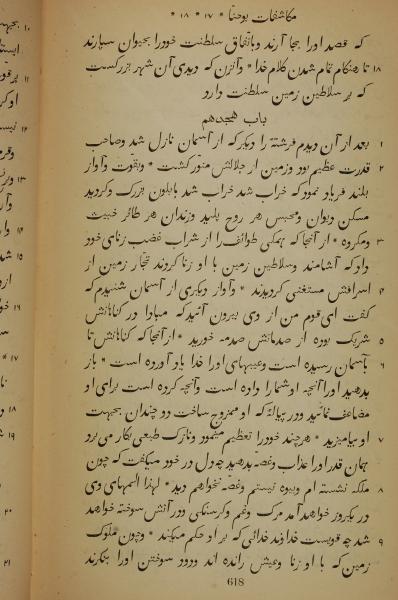 مکاشفات یوحنا * ۱۷ * ۱۸ *
که قصد اورا بجا آرند وباتفاق سلطنت خودرا بحیوان سپارند
۱۸ تا هنکام تمام شدن کلام خدا * وآنزن که دیدی آن شهر بزرکست
که بر سلاطین زمین سلطنت دارد
باب هجدهم
۱ بعد از آن دیدم فرشتهٔ را دیکر که از آسمان نازل شد وصاحب
۲ قدرت عظیم بود وزمین از جلالش منور کشت * وبقوت وآواز
بلند فریاد نمود که خراب شد خراب شد بابلون بزرک وکردید
مسکن دیوان ومحبس هر روح پلید وزندان هر طائر خبیث
۳ ومکروه * از آنجا که همکی طوائف را از شراب غضب زنای خود
داد که آشامند وسلاطین زمین با او زنا کردند تجار زمین از
۴ اسرافش مستغنی کردیدند * وآواز دیکری از آسمان شنیدم که
کفت ای قوم من از وی بیرون آئید که مبادا در کناهانش
۵ شریک بوده از صدماتش صدمه خورید * از آنجا که کناهانش تا
۶ بآسمان رسیده است وعیبهای اورا خدا یاد آورده است * باز
بدهید اورا آنچه او شما را داده است وآنچه کرده است برای او
مضاعف نمائید ودر پیالهٔ که او ممزوج ساخت دو چندان بجهت
۷ او بیامیزید * هر چند خودرا تعظیم مینمود ونازک طبعی بکار می برد
همان قدر اورا عذاب وغصه بدهید چه دل در خود میکفت که چون
۸ ملکه نشسته ام وبیوه نیستم وغصه نخواهم دید * لهذا المهای وی
در یکروز خواهند آمد مرک وغم وکرسنکی ودر آتش سوخته خواهد
۹ شد چه قویست خداوند خدائی که بر او حکم میکند * وچون ملوک
زمین که با او زنا وعیش رانده اند ودود سوختن اورا بنکرند
618